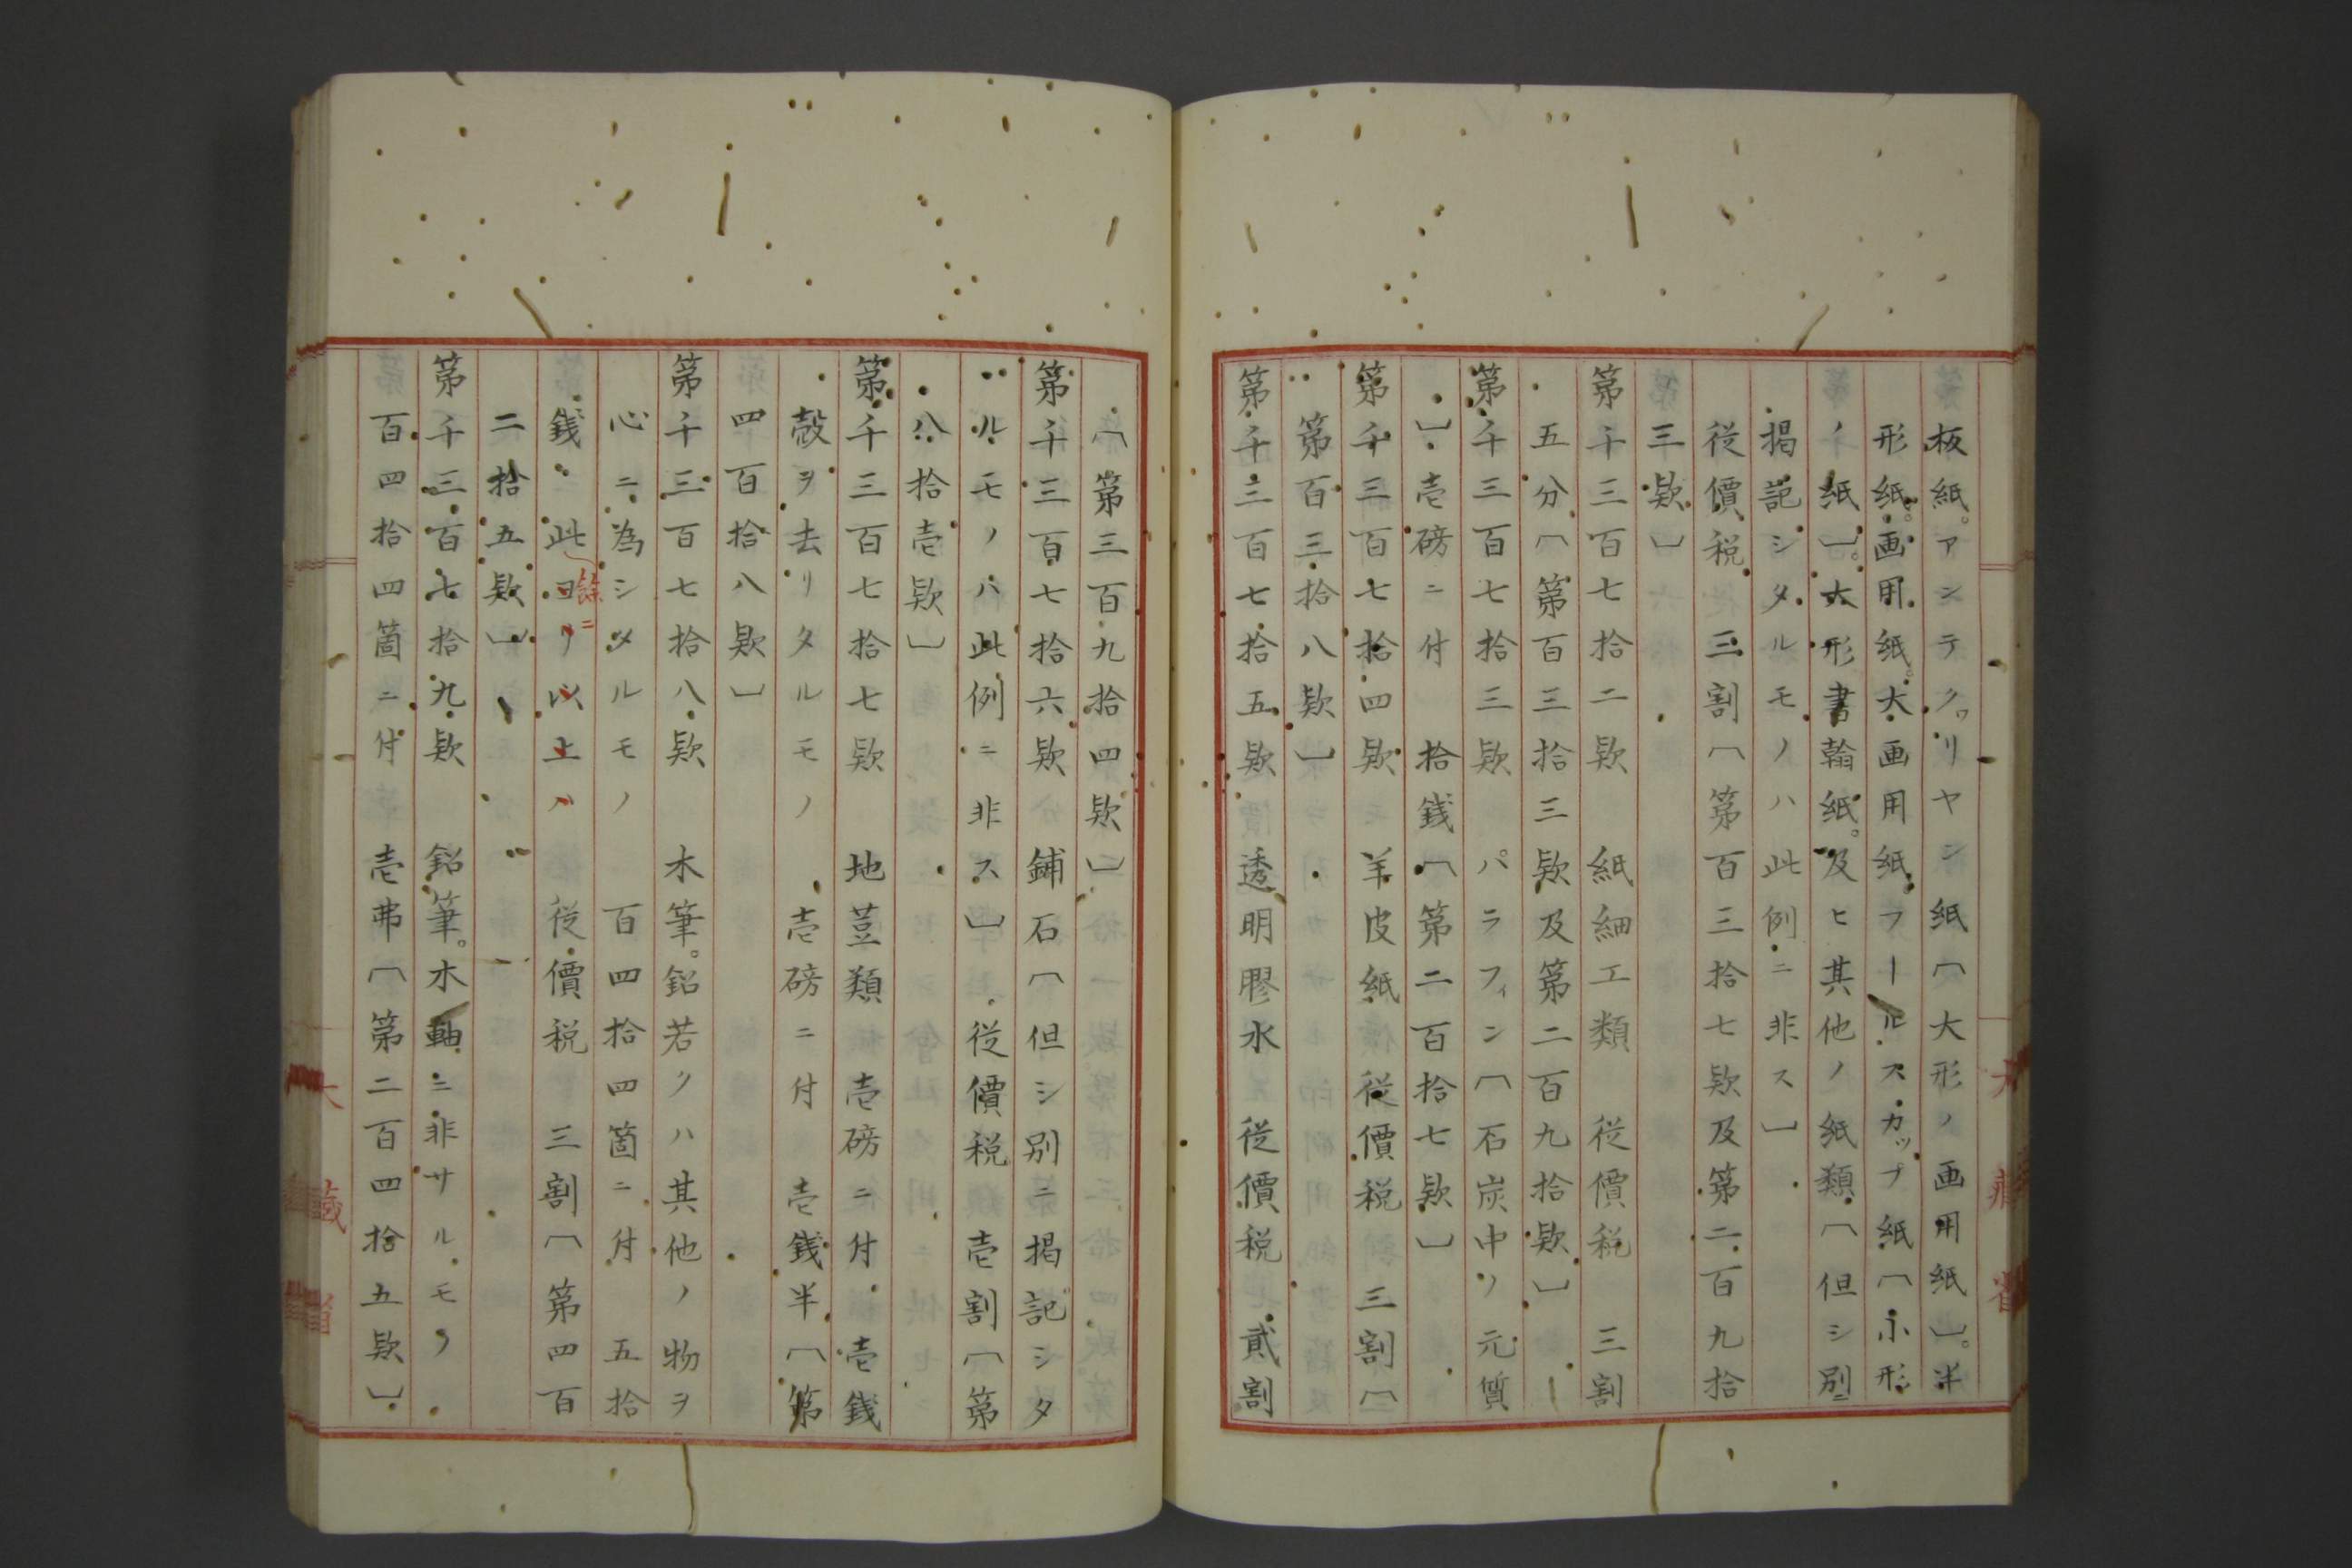 板紙。アンテクワリヤン紙〔大形ノ画用紙〕。半
形紙。画用紙。大画用紙。フールスカップ紙〔小形
ノ紙〕。大形書翰紙。及ヒ其他ノ紙類〔但シ別ニ
掲記シタルモノハ此例ニ非ス〕
従價税　三割〔第百三拾七欵及第二百九拾
三欵〕
第千三百七拾二欵　紙細工類　従價税　三割
五分〔第百三拾三欵及第二百九拾欵〕
第千三百七拾三欵　パラフィン〔石炭中ノ元質
〕壱磅ニ付　拾錢〔第二百拾七欵〕
第千三百七拾四欵　羊皮紙　従價税　三割〔
第百三拾八欵〕
第千三百七拾五欵　透明膠水　従價税　貳割
〔第三百九拾四欵〕
第千三百七拾六欵　鋪石〔但シ別ニ掲記シタ
ルモノハ此例ニ非ス〕従價税　壱割〔第
八拾壱欵〕
第千三百七拾七欵　地荳類　壱磅ニ付　壱錢
殻ヲ去リタルモノ　壱磅ニ付　壱錢半〔第
四百拾八欵〕
第千三百七拾八欵　木筆。鉛若クハ其他ノ物ヲ
心ニ為シタルモノ　百四拾四箇ニ付　五拾
錢　此ヨリ以上ハ　従價税　三割〔第四百
餘ニ
二拾五欵〕
第千三百七拾九欵　鉛筆。木軸ニ非サルモノ
百四拾四箇ニ付　壱弗〔第二百四拾五欵〕
大藏省
大藏省